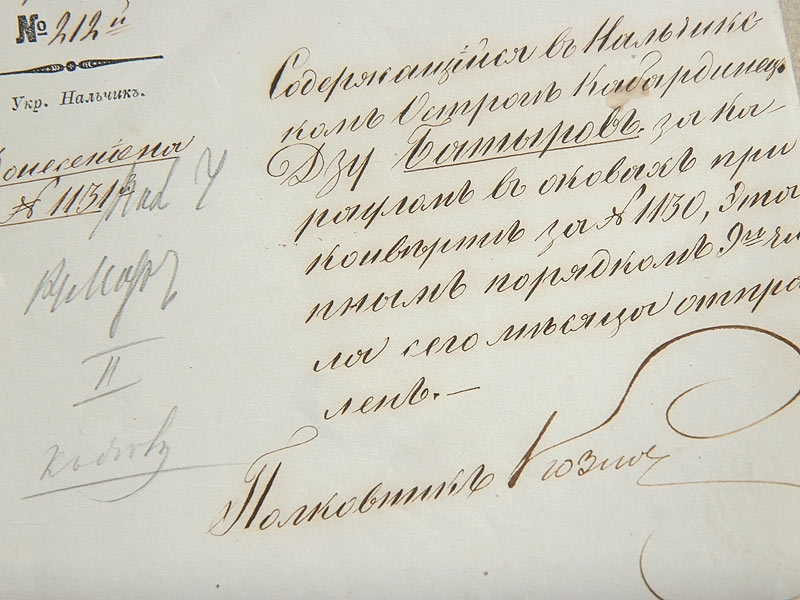 № 212й
Укр. Нальчикъ.
№ 1131
Содержащійся въ Нальчикс
комъ Острогѣ Кабардинецъ
Дзу Батыровъ, за ка-
рауломъ въ оковахъ при
конвертѣ за № 1130, Этап
нымъ порядкомъ 9го чис
ла сего мѣсяца отпра
ленъ.—
Полковникъ